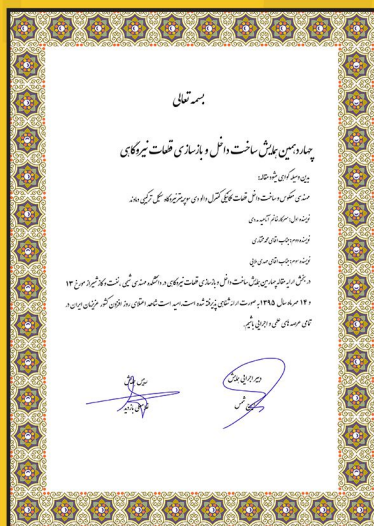 بسمه تعالی
چهاردهمین همایش ساخت داخل و بازسازی قطعات نیروگاهی
بدین وسیله گواهی میشود مقاله:
مهندسی معکوس و ساخت داخل قطعات مکانیکی کنترل والو دی سوپرهیتر نیروگاه سیکل ترکیبی دماوند
نویسنده اول: سرکار خانم آناهید
نویسنده دوم: جناب آقای محمد مختاری
نویسنده سوم: جناب آقای مهدی
در بخش ارایه مقاله چهاردهمین همایش ساخت داخل و بازسازی قطعات نیروگاهی در دانشکده مهندسی شیمی، نفت و گاز شیراز مورخ ۱۳
و ۱۴ مهرماه سال ۱۳۹۵ به صورت ارائه شفاهی پذیرفته شده است. امید است شاهد اعتلای روز افزون کشور عزیزمان ایران در
تمامی عرصه های علمی و اجرایی باشیم.
دبیر اجرایی همایش
شمس
همایش